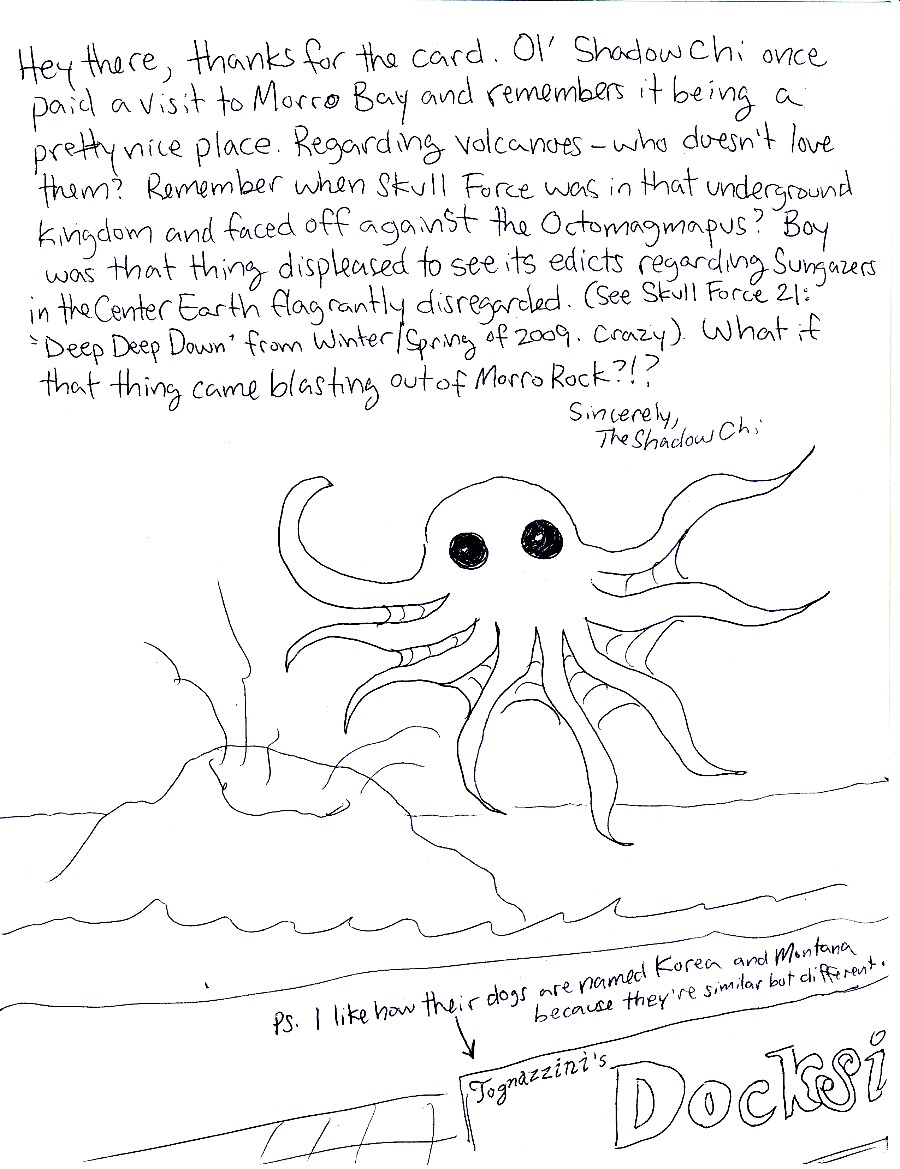 Hey there, thanks for the card. Ol' Shadow Chi once
paid a visit to Morro Bay and remembers it being a
pretty nice place. Regarding volcanoes – who doesn't love
them? Remember when Skull Force was in that underground
kingdom and faced off against the Octomagmapus? Boy
was that thing displeased to see its edicts regarding Sungazers
in the Center Earth flagrantly disregarded. (See Skull Force 21:
"Deep Deep Down" from Winter/Spring of 2009. Crazy). What if
that thing came blasting out of Morro Rock?!?
Sincerely,
The Shadow Chi
PS. I like how their dogs are named Korea and Montana
because they're similar but different.
Tognazzini's
Docksi